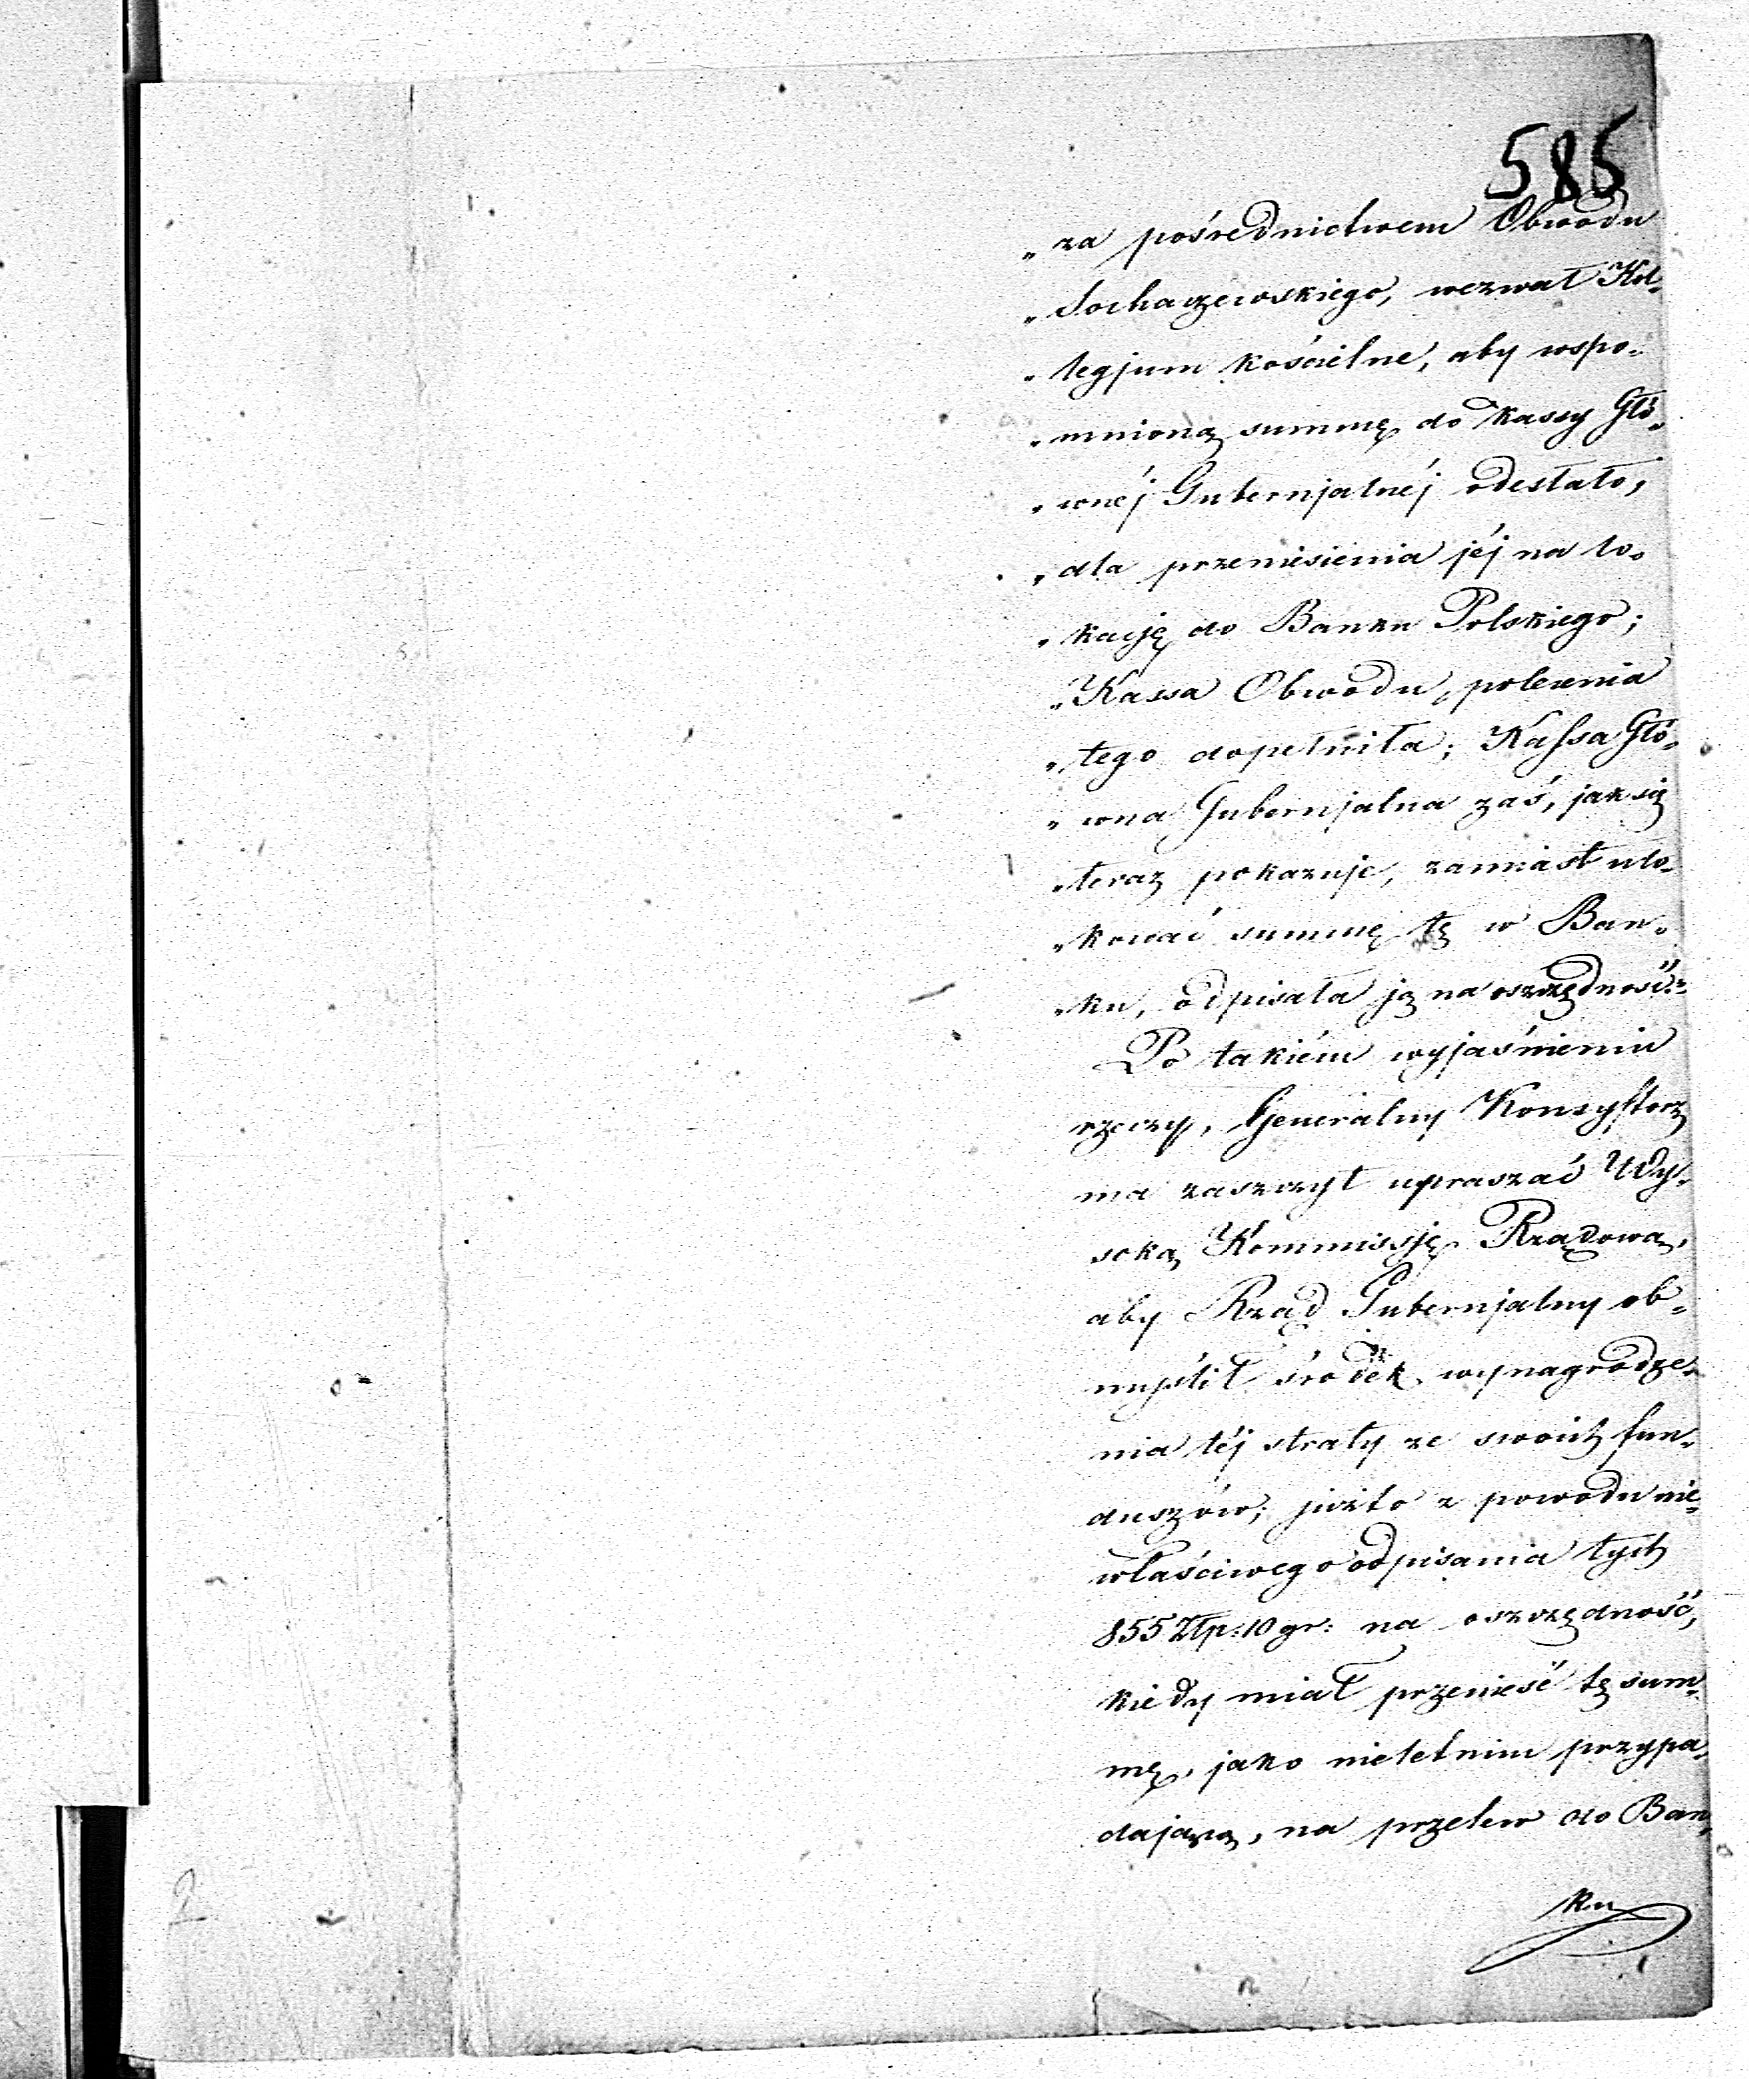 585
„za pośrednictwem Obwodu
„Sochaczewskiego, wezwał Kol„
„legjum kościelne, aby wspo„
„mnioną summę do kassy Głó„
„wnéj Gubernjalnéj odesłało,
„dla przeniesienia jéj na lo„
„kację do Banku Polskiego;
„Kassa Obwodu, polecenia
„tego dopełniła; Kassa Głó„
„wna Gubernjalna zaś, jak się
„teraz pokazuje, zamiast ulo„
„kować summę tę w Ban„
„ku, odpisała ją na oszczędność.”
Po takiém wyjaśnieniu
rzeczy, Generalny Konsystorz
ma zaszczyt upraszać Wy„
soką Kommissję Rządową,
aby Rząd Gubernjalny ob„
myślił środek wynagrodze„
nia téj straty ze swoich fun„
duszów; już to z powodu nie„
właściwego odpisania tych
855 Złp: 10 gr: na oszczędność,
kiedy miał przenieść tę sum„
mę, jako nieletnim przypa„
dającą, na przelew do Ban„
ku
2